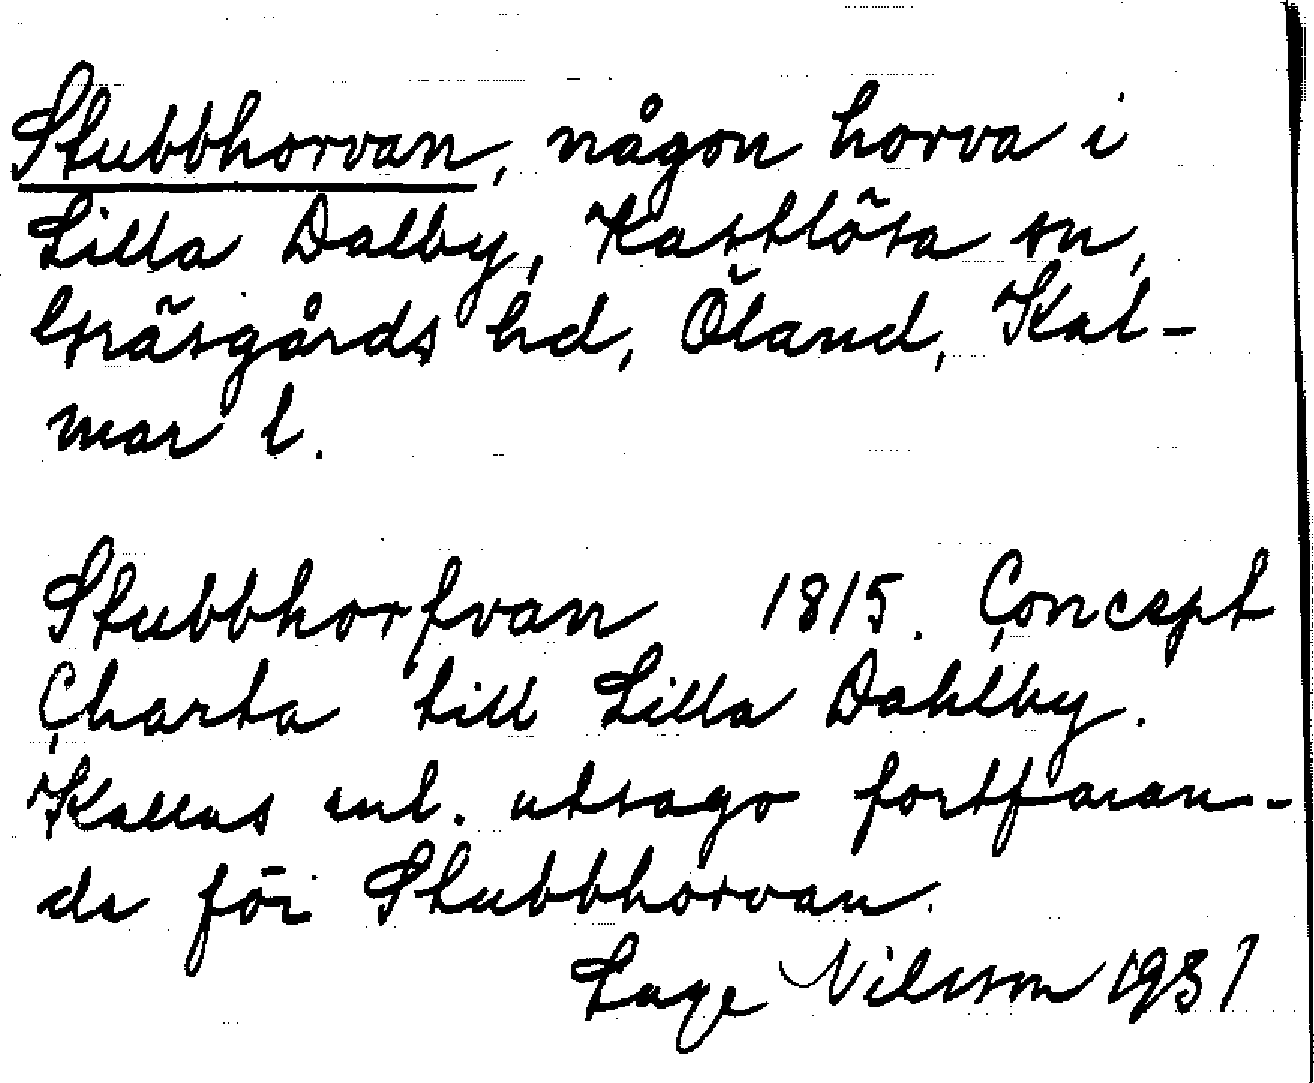 Stubbhorvan, någon horva i
Lilla Dalby, Kastlösa sn,
Gräsgårds hd, Öland, Kal-
mar l.
Stubbhorfvan 1815. Concept
Charta till Lilla Dahlby.
Kallas enl. utsago fortfaran-
de för Stubbhorvan.
Lage Nilsson 1931